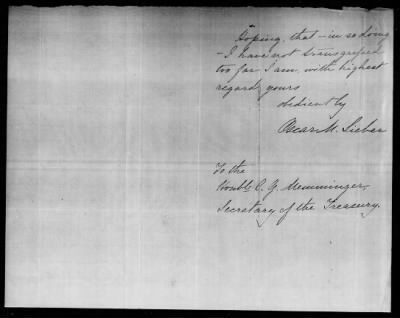 Hoping, that - in so doing
- I have not transgressed
too far I am, with highest
regard, yours
obediently
Oscar M. Lieber
To the
Honble C. G. Memminger,
Secretary of the Treasury.